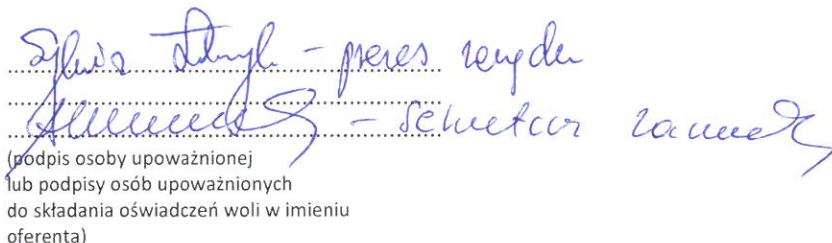 Sylwia – prezes zarządu
– Sekretarz
(podpis osoby upoważnionej
lub podpisy osób upoważnionych
do składania oświadczeń woli w imieniu
oferenta)